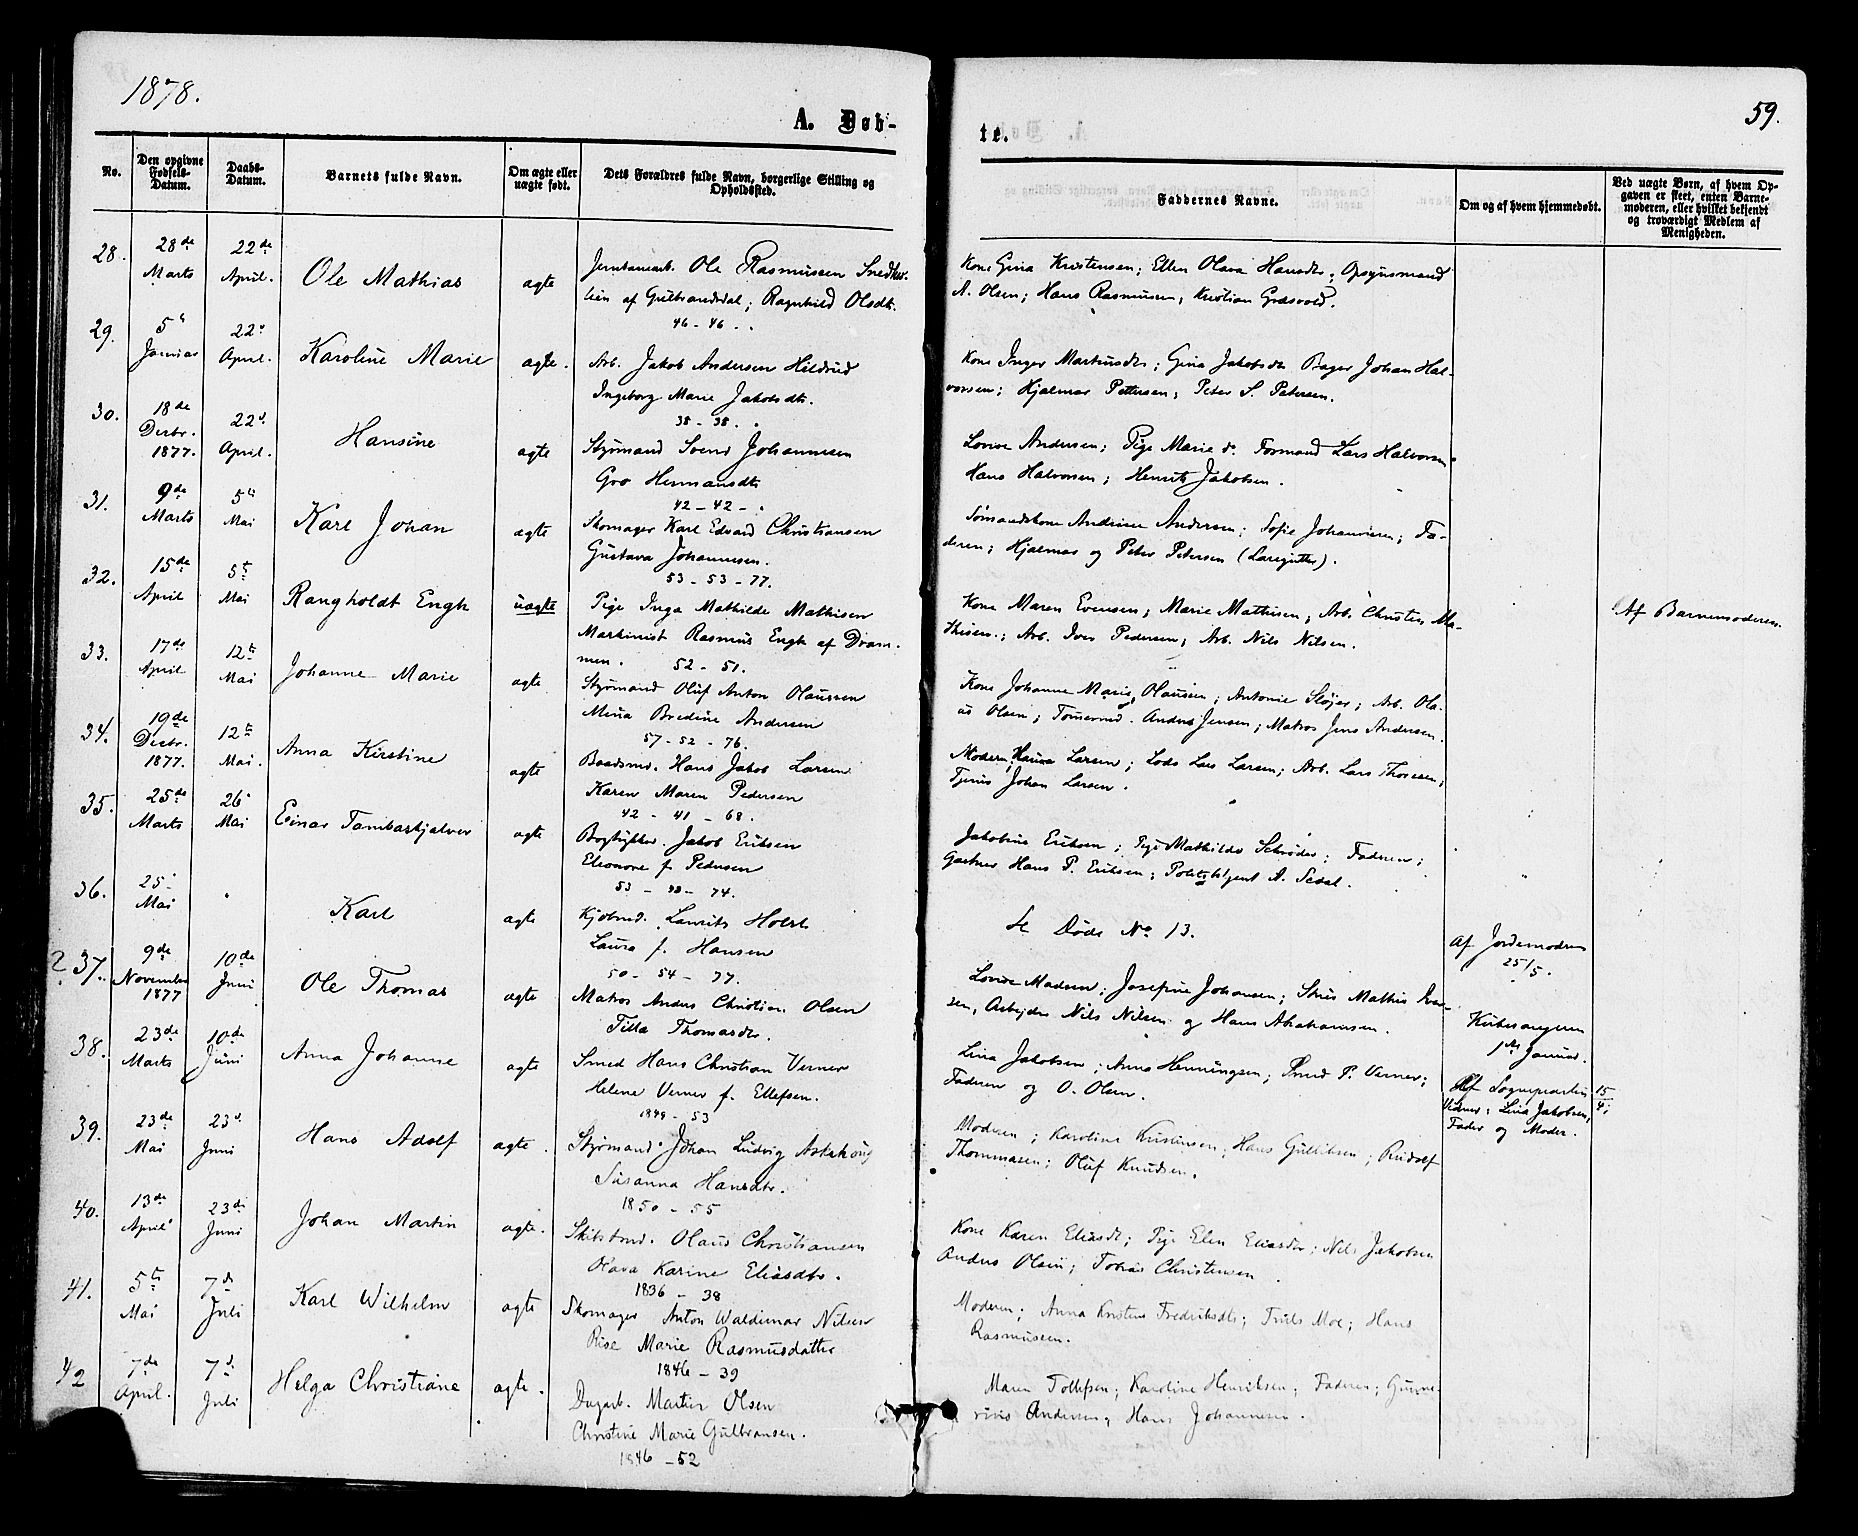 1878.
A. Døb-
No.
Den opgivne
Fødsels-
Datum.
Daabs-
Datum.
Barnets fulde Navn.
Om ægte eller
uægte født.
Dets Forældres fulde Navn, borgerlige Stilling og
Opholdssted.
28.
28de
Marts
22de
April.
Ole Mathias
ægte
Ole Rasmussen
af Gulbrandsdal; Ragnhild Olsdtr.
46 - 46
29.
5te
Januar
22de
April.
Karoline Marie
ægte.
Arb. Jakob Andersen Hildrud
Ingeborg Marie Jakobsdtr.
38 - 38.
30.
18de
Decbr.
1877.
22d
April.
Hansine
ægte
Styrmand Svend Johannesen
Gro Hermansdtr
42 - 42 -
31.
9de
Marts
5te
Mai
Karl Johan
ægte
Skomager Karl Edvard Christiansen
Gustava Johannesen.
53 - 53 - 77.
32.
15de
April
5te
Mai
Rangholdt Engh
uægte
Pige Inga Mathilde Mathisen
Maskinist Rasmus Engh af Dram-
men. 52 - 51.
33.
17de
April
12te
Mai
Johanne Marie
ægte
Styrmand Oluf Anton Olaussen
Mina Bredine Andersen
57 - 52 - 76.
34.
19de
Decbr.
1877.
12te
Mai.
Anna Kirstine
ægte
Baadsmd. Hans Jakob Larsen
Karen Maren Pedersen
42 - 41 - 68.
35.
25de
Marts
26
Mai
Einar Tambarskjælver
ægte
Bogtrykker Jakob Eriksen
Eleonore f. Pedersen
36.
25
Mai
Karl
ægte
Kjøbmd. Laurits Holst
Laura f. Hansen
50 - 54 - 77.
? 37.
9de
November
1877
10de
Juni
Ole Thomas
ægte
Matros Anders Christian Olsen
Thomasdtr.
38.
23de
Marts
10de
Juni
Anna Johanne
ægte
Smed Hans Christian Verner
Helene Verner f. Ellefsen.
1849 - 53
39.
23de
Mai
23d
Juni
Hans Adolf
ægte.
Styrmand Johan Ludvig
Susanna Hansdtr.
1850 - 55
40.
13de
April
23de
Juni
Johan Martin
ægte.
Skibstmd. Olaus Christiansen
Olava Karine Eliasdtr.
1836 - 38
41.
5te
Mai
7d
Juli
Karl Wilhelm
ægte
Skomager Anton Waldemar Nilsen
Marie Rasmusdatter
1846 - 39
42
7de
April.
7d
Juli
Helga Christiane
ægte.
Dagarb. Martin Olsen
Christine Marie Gulbransen.
1846 - 52
te.
59.
Faddernes Navne.
Om og af hvem hjemmedøbt.
Ved uægte Børn, af hvem Op-
gaven er skeet, enten Barne-
moderen, eller hvilket bekjendt
og troværdigt Medlem af
Menigheden.
Kone Gina Kristensen; Ellen Olava Hansdtr; Opsynsmand
A. Olsen; Hans Rasmussen; Kristian Græsvold.
Kone Inger Martinsdtr; Gina Jakobsdtr Bager Johan Hal-
vorsen; Hjalmar Pettersen; Peter S. Petersen.
Lovise Andersen; Pige Marie do. Formand Lars Halvorsen
Hans Halvorsen; Henrik Jakobsen.
Sømandskone Andrine Andersen; Sofie Johannesen; Fa-
deren; Hjalmar og Peter Petersen (Læregutter).
Kone Maren Evensen; Marie Mathisen; Arb. Christen Ma-
thisen; Arb. Iver Pedersen; Arb. Nils Nilsen.
Af Barnemoderen.
Kone Johanne Marie Olaussen; Antonie Sløjer; Arb. Ola-
us Olsen; Tømermd. Anders Jensen; Matros Jens Andersen.
Moderen; Larsen; Lods Lars Larsen; Arb. Lars Thoresen;
Johan Larsen.
Jakobine Eriksen; Pige Mathilde Schrøder; Faderen;
Gartner Hans P. Eriksen; Politibtjent A. Sedal.
Se Døde No 13.
Af Jordemoderen
25/5.
Lovise Madsen; Josefine Johansen; Mathis Iver-
sen, Arbejder Nils Nilsen og Hans Abrahamsen.
Kirkesangeren
1ste Januar.
Lina Jakobsen; Anna Henningsen; Smed P. Verner;
Faderen og O. Olsen.
Af Sognepresten 15/4;
Vidner: Lina Jakobsen,
Fader og Moder.
Moderen; Karoline Kristensen; Hans Gulliksen; Rudolf
Thommasen; Oluf Knudsen.
Kone Karen Eliasdtr; Pige Elen Eliasdtr; Nils Jakobsen
Anders Olsen; Tobias Christensen.
Moderen; Anna Kristine Fredriksdtr; Truls Moe; Hans
Rasmussen.
Maren Tollefsen; Karoline Henriksen; Faderen; Gunne-
rius Andersen; Hans Johannesen.